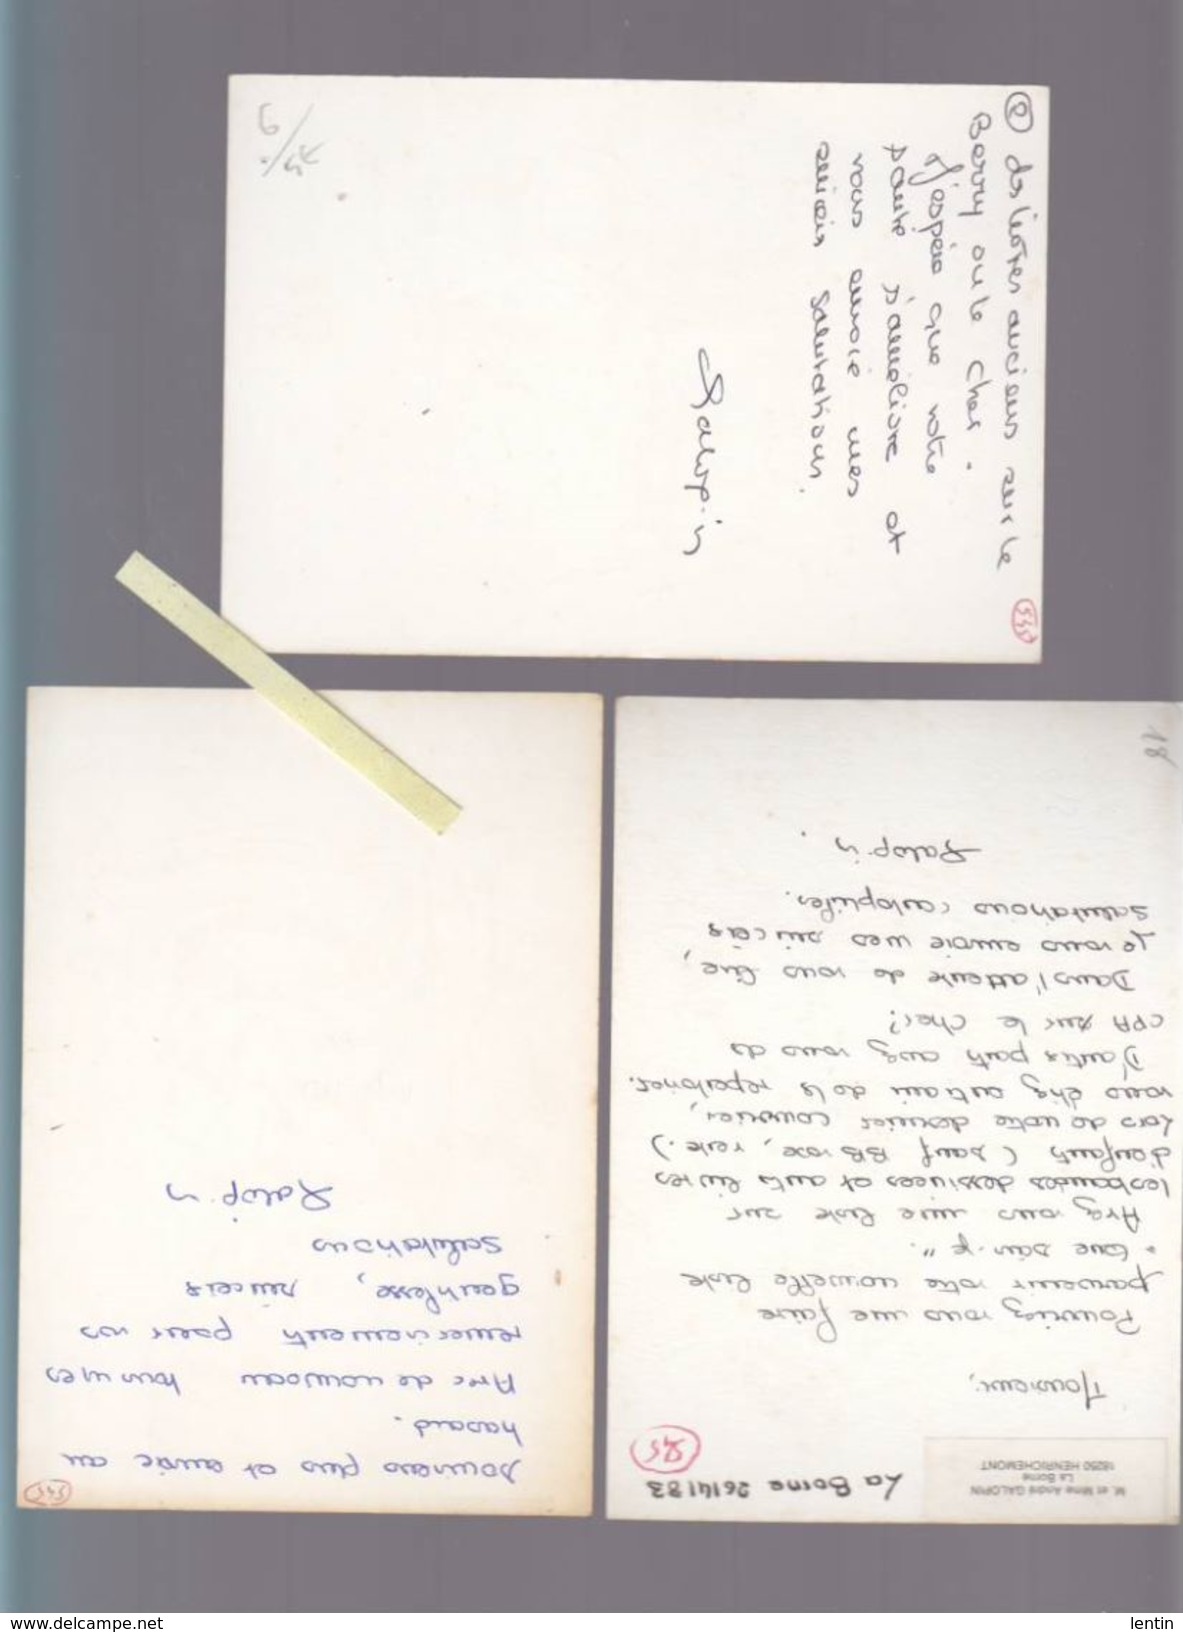 ② des livres anciens sur le
Berry ou le Cher.
J'espère que votre
santé s'améliore et
vous envoie mes
sincères salutations.
Galopin
535
18
M. et Mme André GALOPIN
La Borne
18250 HENRICHEMONT
La Borne 26/4/83
Monsieur,
Pourriez vous me faire
parvenir votre nouvelle liste
Avez vous une liste sur
les bandes dessinées et autres livres
d'enfants (sauf BB rose, verte.)
Lors de votre dernier courrier,
vous étiez en train de la repertorier.
D'autre part avez vous des
CPA sur le Cher?
Dans l'attente de vous lire,
Je vous envoie mes sincères
salutations cartophiles.
Galopin.
535
données plus et envoie au
hasard.
Avec de nouveau tous mes
remerciements pour vos
gentillesse, sincères
salutations
Galopin
www.delcampe.net
lentin